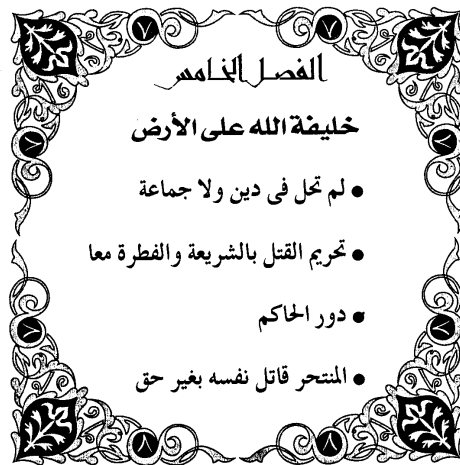 الفصل الخامس
خليفة الله على الأرض
● لم تحل فى دين ولا جماعة
● تحريم القتل بالشريعة والفطرة معا
● دور الحاكم
● المنتحر قاتل نفسه بغير حق